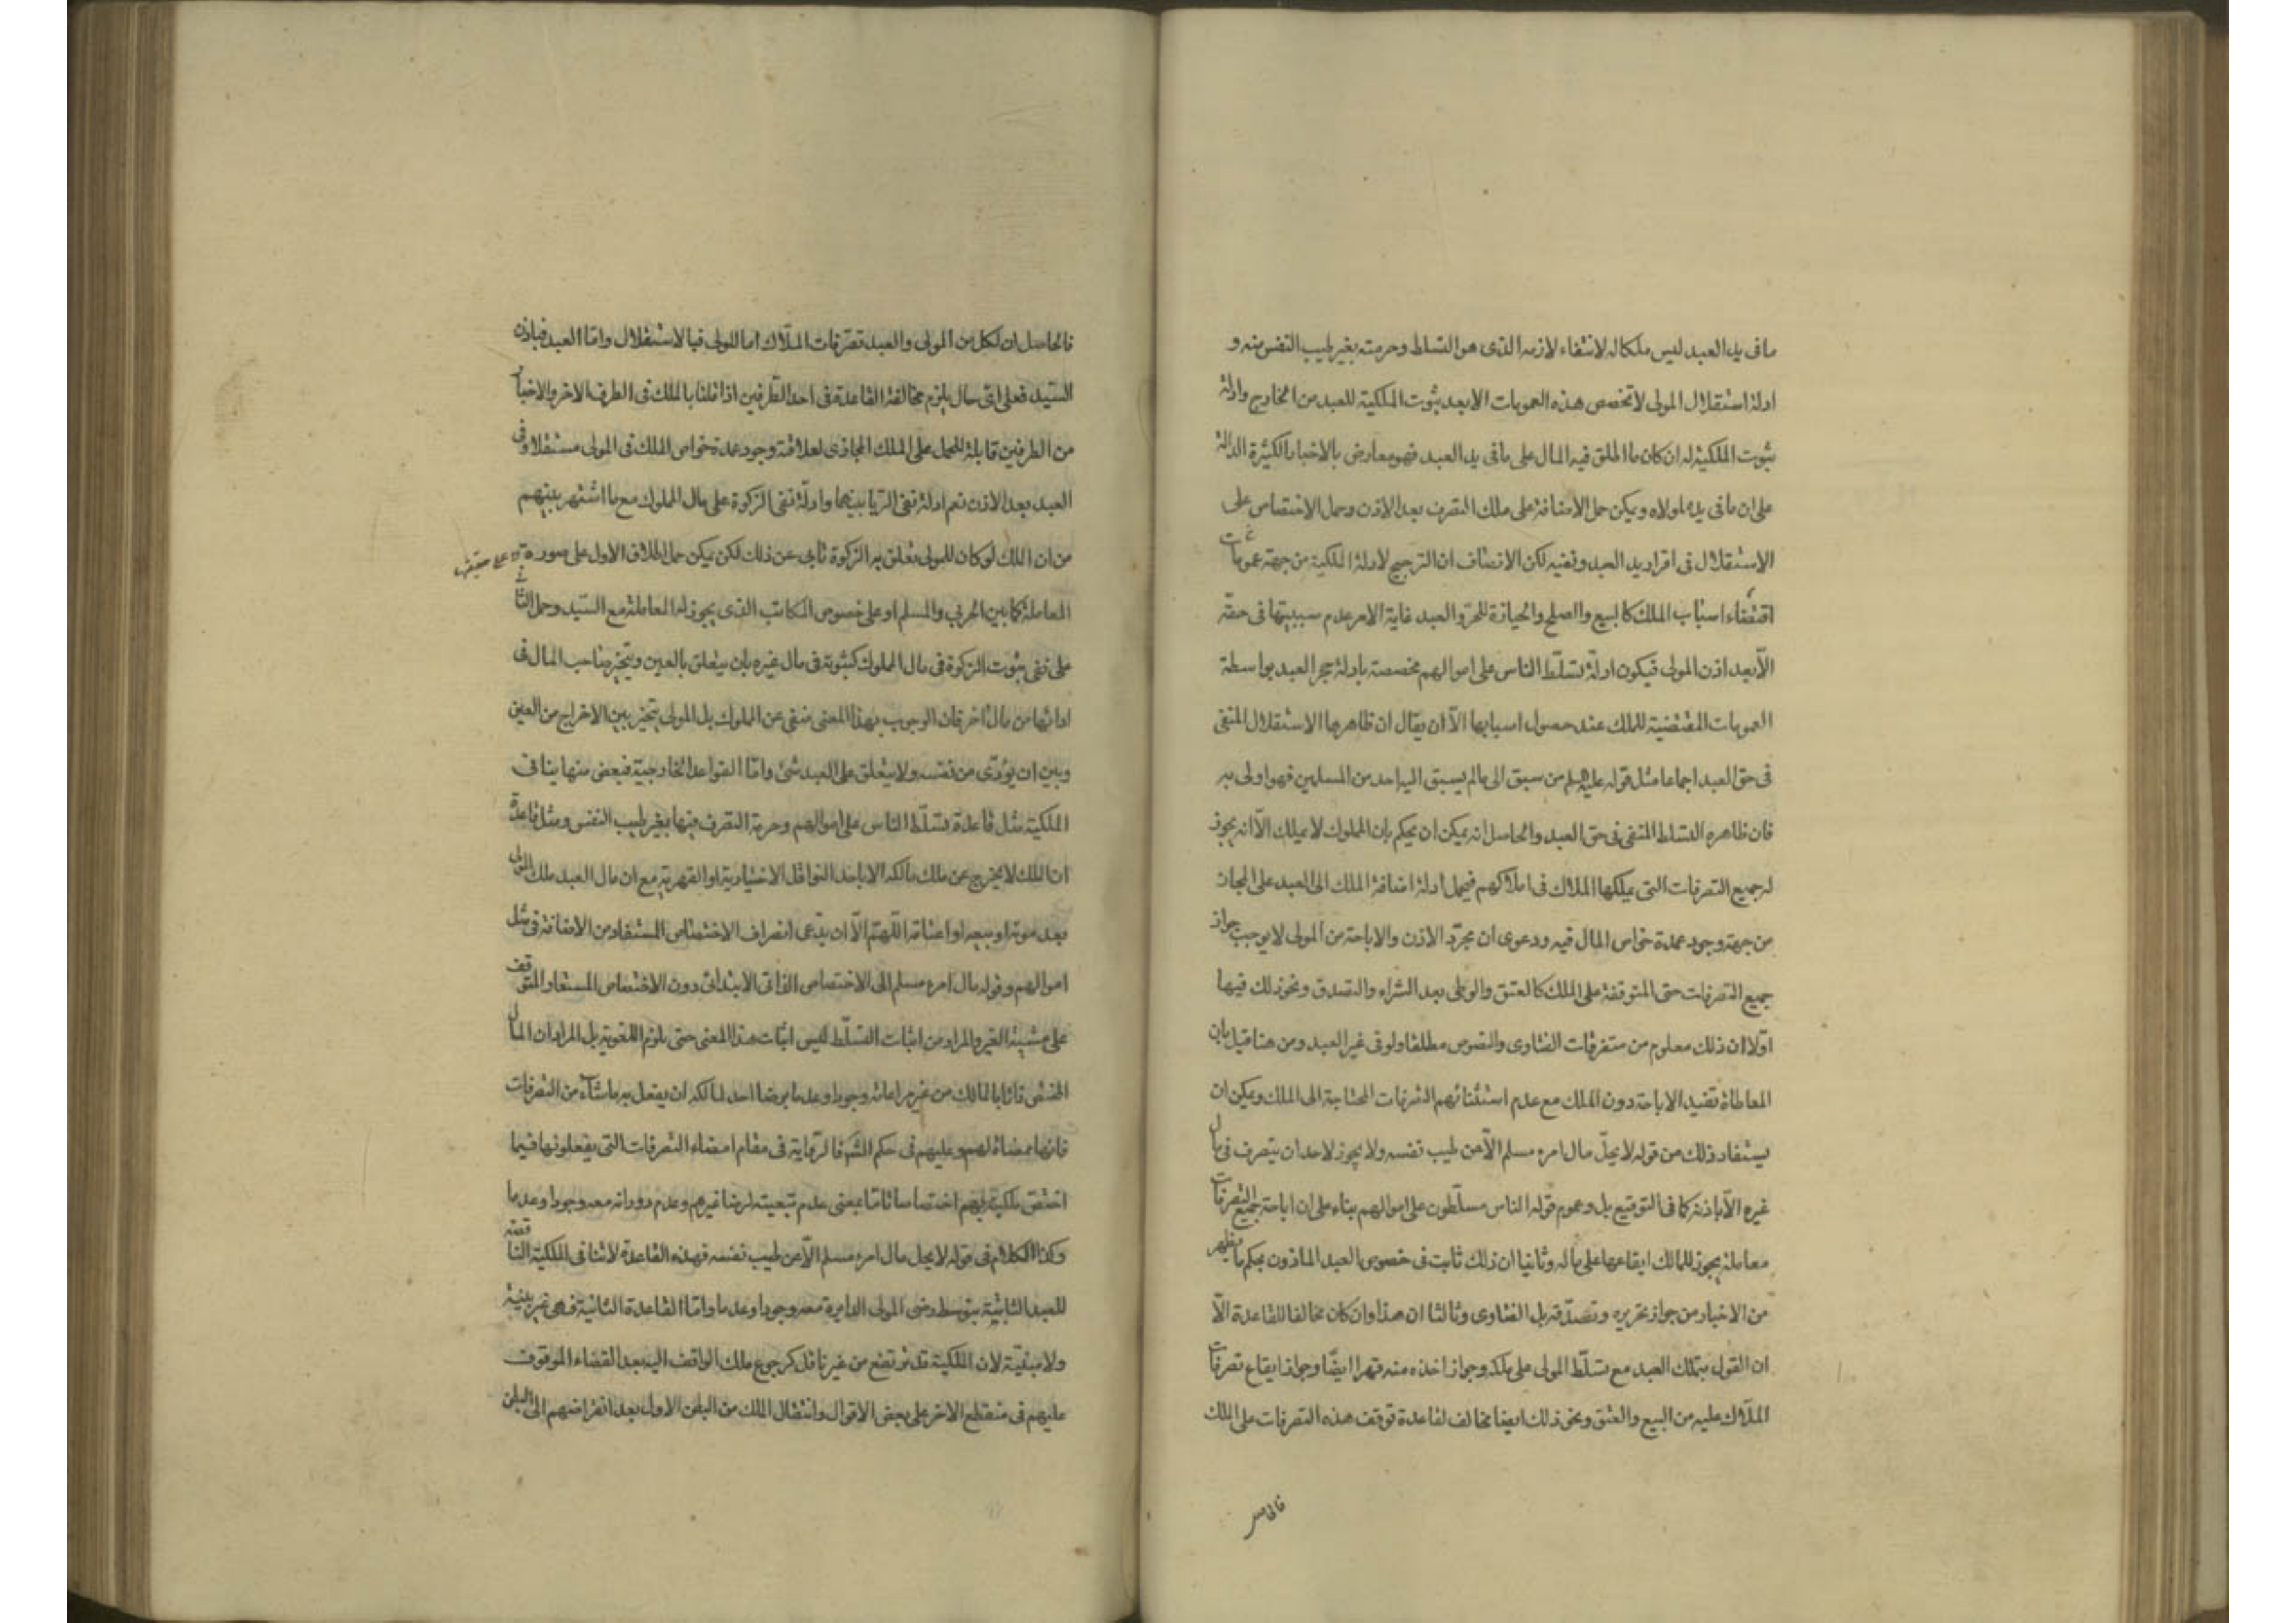 مافى يد العبد ليس ملكا له لانتفاء لازمه الذى هو التسلط وحرمته بغير طيب النفس منه و
ادلة استقلال المولى لا تخصص هذه العمومات الا بعد ثبوت الملكية للعبد من الخارج وادلة
ثبوت الملكية له ان كان ما اطلق فيه المال على مافى يد العبد فهو معارض بالاخبار الكثيرة الدالة
على ان مافى يده لمولاه ويمكن حمل الاضافة على ملك التصرف بعد الاذن وحمل الاختصاص على
الاستقلال فى اقرار يد العبد ونفيه لكن الانصاف ان الترجيح لادلة الملكية من جهة عمومات
اقتضاء اسباب الملك كالبيع والصلح والحيازة للحر والعبد غاية الامر عدم سببيتها فى حقه
الّا بعد اذن المولى فيكون ادلة تسلّط الناس على اموالهم مخصصة بادلة حجر العبد بواسطة
العمومات المقتضية للملك عند حصول اسبابها الّا ان يقال ان ظاهرها الاستقلال المنفى
فى حق العبد اجماعا مثل قوله عليه السلم من سبق الى مالم يسبق اليه احد من المسلمين فهو اولى به
فان ظاهره التسلط المنفى فى حق العبد والحاصل انه يمكن ان يحكم بان المملوك لا يملك الّا انه يجوز
له جميع التصرفات التى يملكها الملاك فى املاكهم فيحمل ادلة اضافة الملك الى العبد على المجاز
من جهة وجود عمدة خواص المال فيه ودعوى ان مجرّد الاذن والاباحة من المولى لا يوجب جواز
جميع التصرفات حتى المتوقفة على الملك كالعتق والوطى بعد الشراء والتصدق ونحو ذلك فيها
اوّلا ان ذلك معلوم من متفرقات الفتاوى والنصوص مطلقا ولو فى غير العبد ومن هنا قيل بان
المعاطاة تفيد الاباحة دون الملك مع عدم استثنائهم التصرفات المحتاجة الى الملك ويمكن ان
يستفاد ذلك من قوله لا يحلّ مال امرء مسلم الّا عن طيب نفسه ولا يجوز لاحد ان يتصرف فى مال
غيره الّا باذنه كما فى التوقيع بل وعموم قوله الناس مسلّطون على اموالهم بناء على ان اباحة جميع التصرفات
معاملة يجوز للمالك ايقاعها على ماله وثانيا ان ذلك ثابت فى خصوص العبد الماذون بحكم ما يظهر
من الاخبار من جواز تحريره وتصدّقه بل الفتاوى وثالثا ان هذا وان كان مخالفا للقاعدة الّا
ان القول بتملك العبد مع تسلّط المولى على ملكه وجواز اخذه منه قهرا ايضا وجواز ايقاع تصرفات
الملّاك عليه من البيع والعتق ونحو ذلك ايضا مخالف لقاعدة توقف هذه التصرفات على الملك
فالحاصل
فالحاصل ان لكل من المولى والعبد تصرّفات الملّاك اما للمولى فبالاستقلال وامّا العبد فباذن
السيّد فعلى اىّ حال يلزم مخالفة القاعدة فى احد الطّرفين اذا قلنا بالملك فى الطرف الاخر والاخبار
من الطرفين قابلة للحمل على الملك المجازى لعلاقة وجود عمدة خواص الملك فى المولى مستقلا وفى
العبد بعد الاذن نعم ادلة نفى الربا بينهما وادلّة نفى الزكوة على مال المملوك مع ما اشتهر بينهم
من ان الملك لو كان للمولى تعلق به الزكوة تابى عن ذلك لكن يمكن حمل اطلاق الاول على صورة
المعاملة كما بين الحربى والمسلم او على خصوص المكاتب الذى يجوز له المعاملة مع السّيد وحمل الثانى
على نفى ثبوت الزكوة فى مال المملوك كثبوته فى مال غيره بان يتعلق بالعين ويتخيّر صاحب المال فى
ادائها من مال اخر فان الوجوب بهذا المعنى منفى عن المملوك بل المولى يتخير بين الاخراج من العين
وبين ان يؤدّى من نفسه ولا يتعلق على العبد شئ وامّا القواعد الخارجية فبعض منها ينافى
الملكية مثل قاعدة تسلّط الناس على اموالهم وحرمة التصرف فيها بغير طيب النفس ومثل قاعدة
ان الملك لا يخرج عن ملك مالكه الا باحد النواقل الاختيارية او القهرية مع ان مال العبد ملك المولى
بعد موته او بيعه او اعتاقه اللّهمّ الّا ان يدّعى انصراف الاختصاص المستفاد من الاضافة فى مثل
اموالهم وقوله مال امرء مسلم الى الاختصاص الذاتى الابتدائى دون الاختصاص المستعار المتوقف
على مشيئة الغير والمراد من اثبات التسلّط ليس اثبات هذا المعنى حتى يلزم اللغوية بل المراد ان المال
المختص ذاتا بالمالك من غير مراعاته وجودا وعدما برضا احد لمالكه ان يفعل به ما شاء من التصرفات
فانها ممضاة لهم وعليهم فى حكم الشرع فالرواية فى مقام امضاء التصرفات التى يفعلونها فيما
اختص ملكيته بهم اختصاصا تاما بمعنى عدم تبعيته لرضا غيرهم وعدم دورانه معه وجودا وعدما
وكذا الكلام فى قوله لا يحل مال امرء مسلم الّا عن طيب نفسه فهذه القاعدة لا تنافى الملكية الناقصة
للعبد الثابتة بتوسط رضى المولى الدايرة معه وجودا وعدما وامّا القاعدة الثانية فهى غير بيّنة
ولا مبيّنة لان الملكية قد ترتفع من غير ناقل كرجوع ملك الواقف اليه بعد انقضاء الموقوف
عليهم فى منقطع الاخر على بعض الاقوال وانتقال الملك من البطن الاول بعد انقراضهم الى البطن